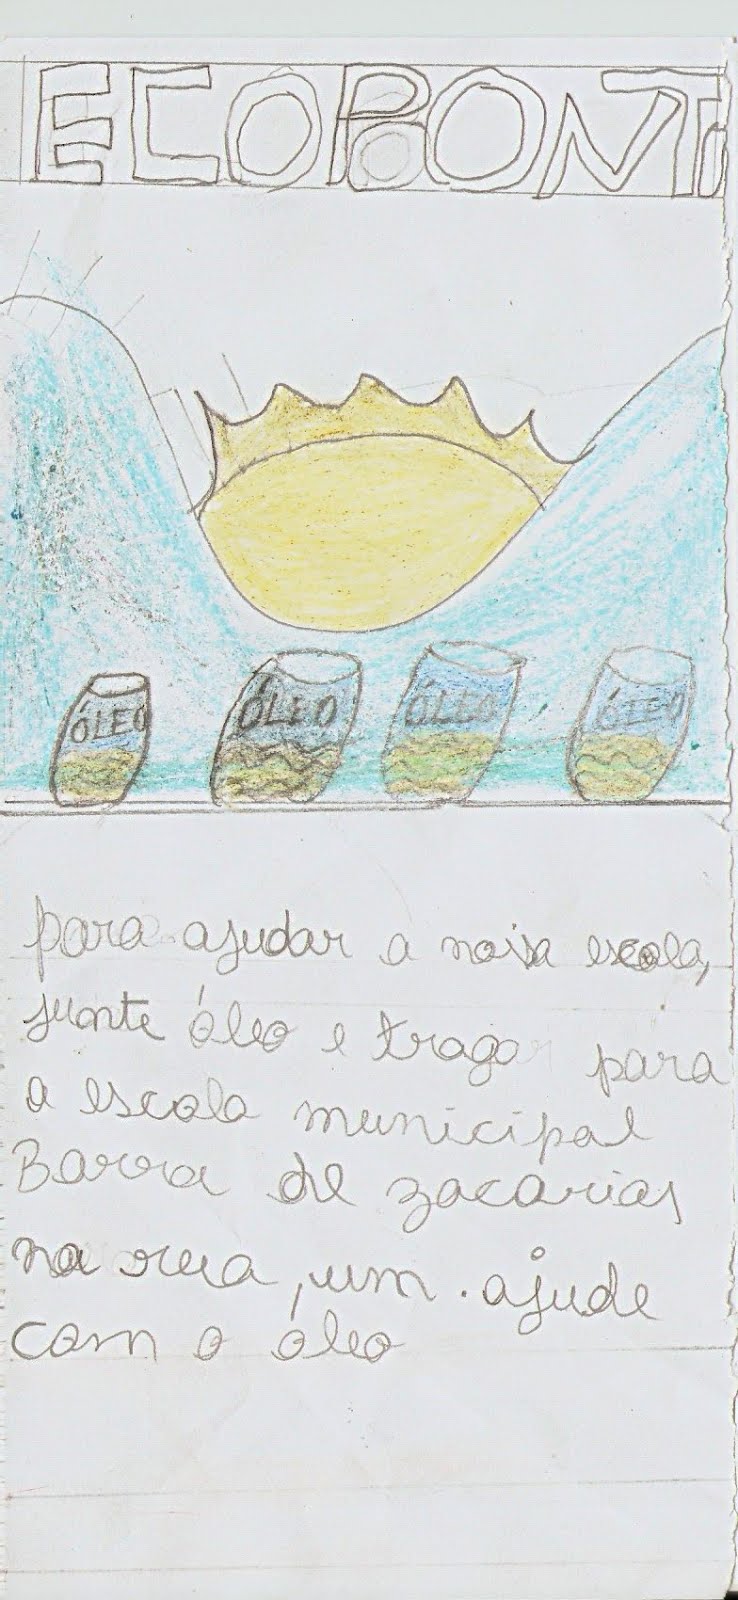 ECOPONTO
ÓLEO ÓLEO ÓLEO ÓLEO
para ajudar a nossa escola,
junte óleo e traga para
a escola municipal
Barra de zacarias
na rua, um. ajude
com o óleo